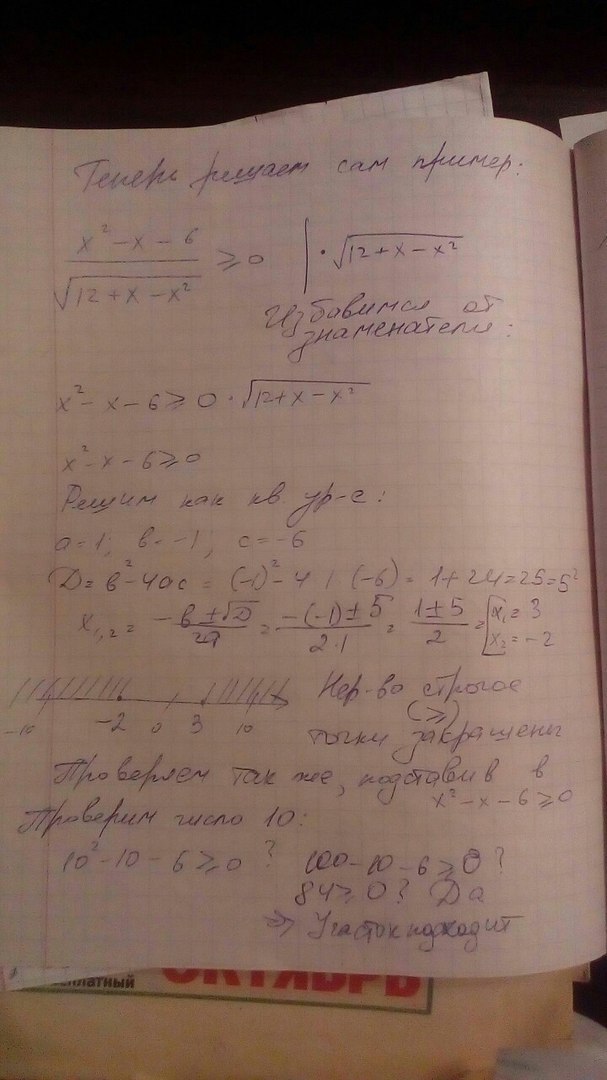 Теперь решаем сам пример:
x² - x - 6
√12 + x - x² ≥ 0 | · √12 + x - x²
Избавимся от
знаменателя:
x² - x - 6 ≥ 0 · √12 + x - x²
x² - x - 6 ≥ 0
Решим как кв ур-е:
a = 1; в = -1; c = -6
D = в² - 4ac = (-1)² - 4 · 1 · (-6) = 1 + 24 = 25 = 5²
x₁,₂ = -в ± √D / 2a = -(-1) ± 5 / 2·1 = 1 ± 5 / 2 = [x₁ = 3 x₂ = -2
-10 -2 0 3 10
Нер-во строгое
(≥)
точки закрашены
Проверяем так же, подставив в
x² - x - 6 ≥ 0
Проверим число 10:
10² - 10 - 6 ≥ 0 ? 100 - 10 - 6 ≥ 0 ?
84 ≥ 0 ? Да
=> Участок подходит
бесплатный
ОКТЯБРЬ